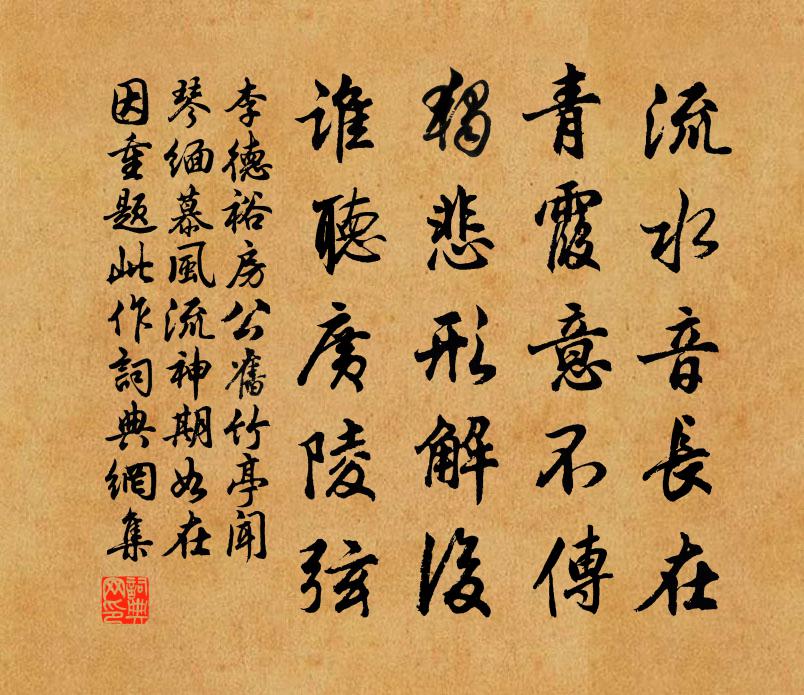 流水音長在
青霞意不傳
獨悲形解後
誰聽廣陵弦
李德裕房公舊竹亭聞
琴緬慕風流神期如在
因重題此作詞典網集
詞典網印